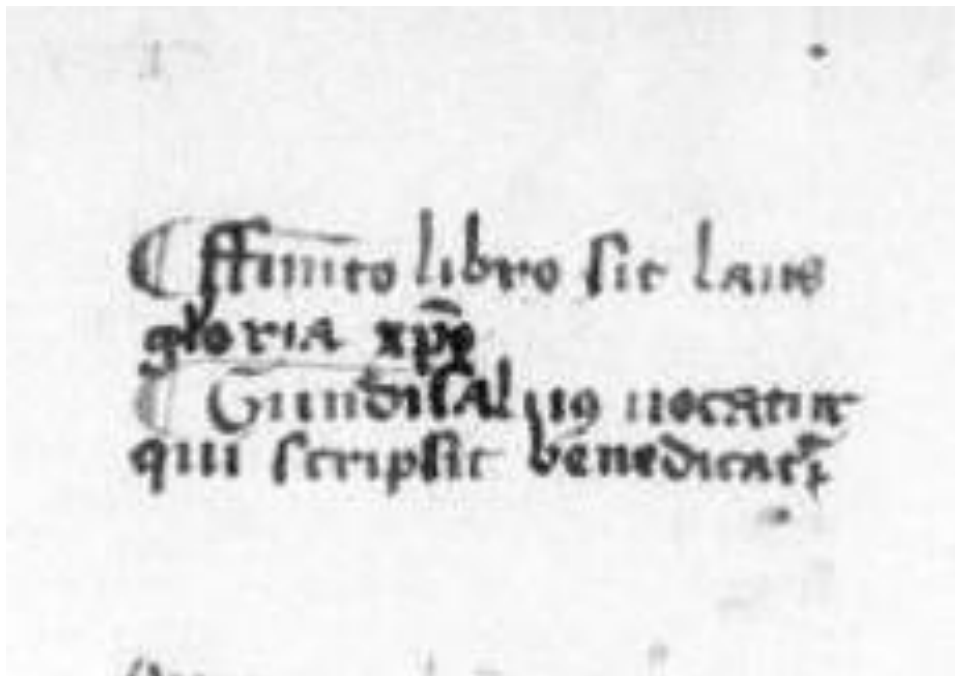 ¶ ffinito libro sit laus
gloria xp̄o
¶ Gundisaluꝰ uocatur
qui scripsit benedicatᷣ